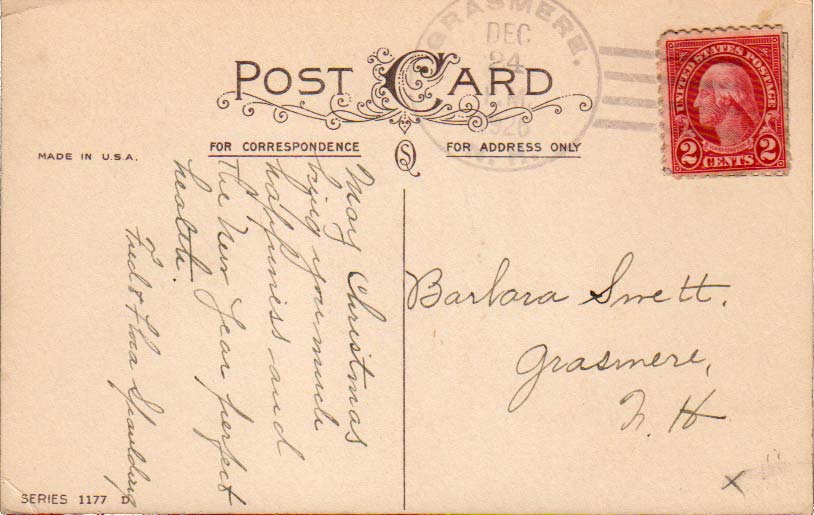 GRASMERE.
DEC
24
1926
N.H.
UNITED STATES POSTAGE
2 CENTS 2
POST CARD
FOR CORRESPONDENCE
FOR ADDRESS ONLY
MADE IN U.S.A.
May Christmas
bring you much
happiness and
the New Year perfect
health.
Fred & Flora Spaulding
Barbara Swett.
Grasmere,
N. H
x
SERIES 1177 D